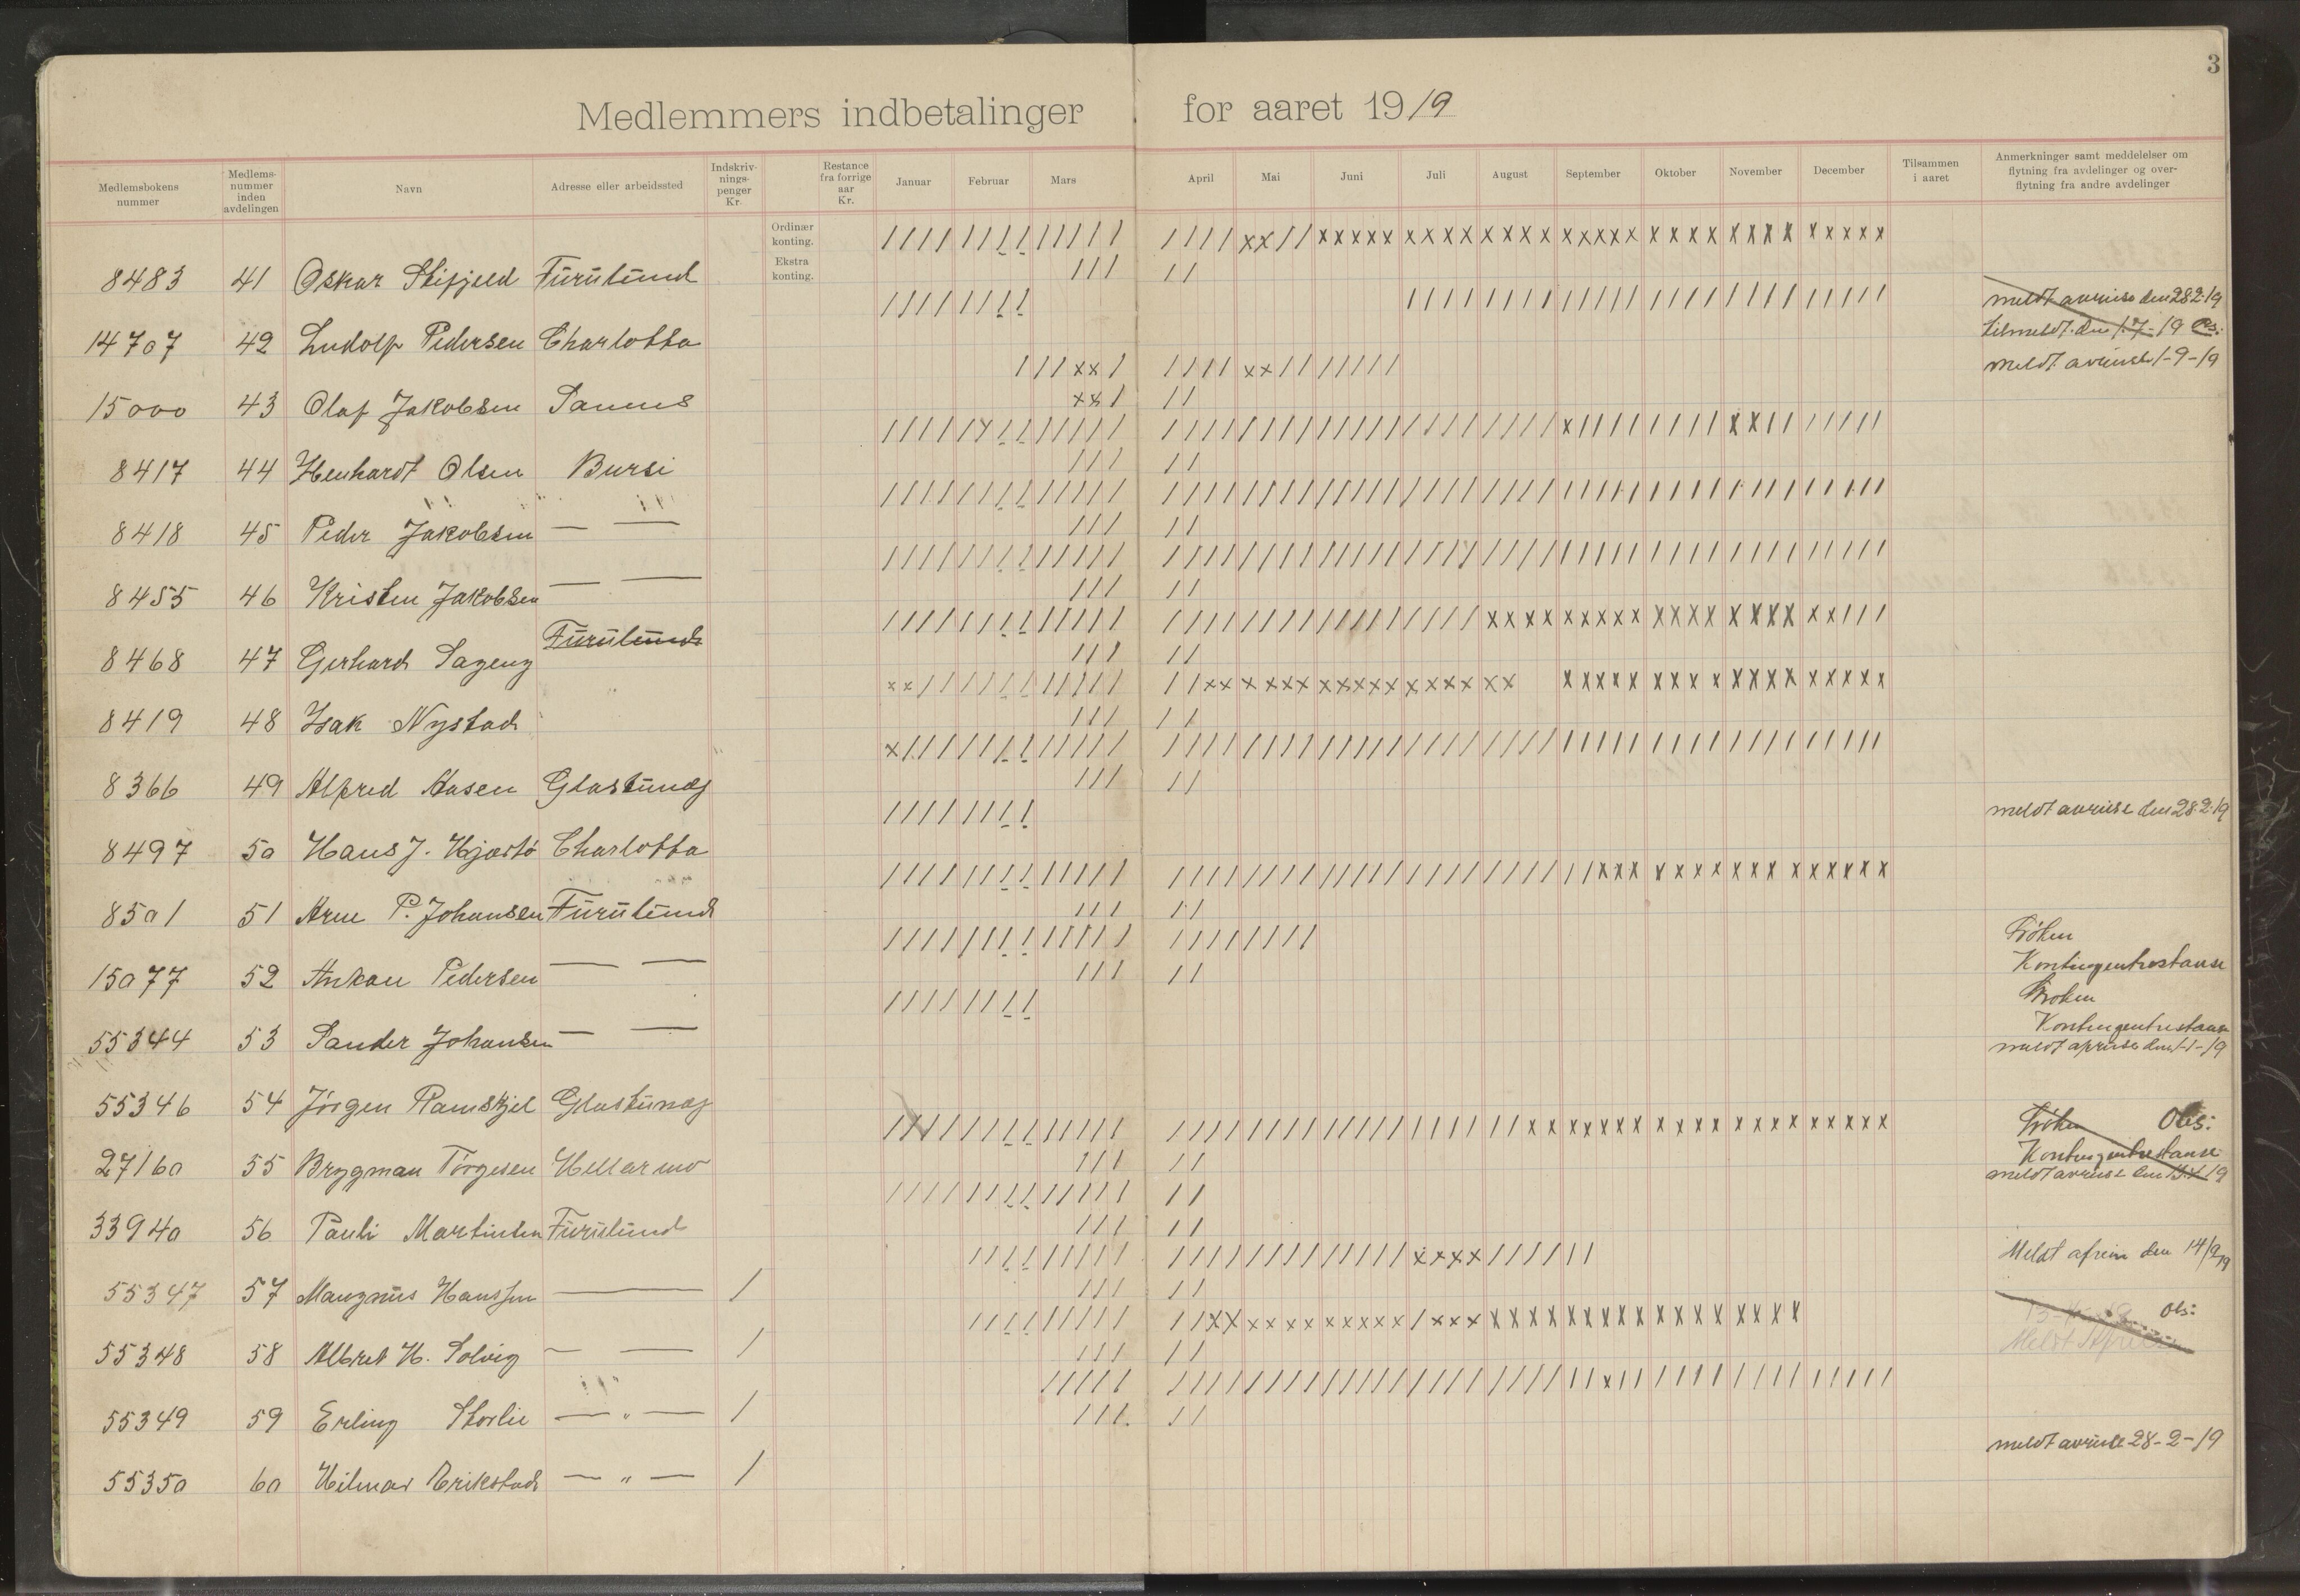 3
Medlemmers indbetalinger for aaret 1919
Medlemsbokens nummer
Medlems-nummer inden avdelingen
Navn
Adresse eller arbeidssted
Indskriv-nings-penger Kr.
Restance fra forrige aar Kr.
Januar Februar Mars April Mai Juni Juli August September Oktober November December
Tilsammen i aaret
Anmerkninger samt meddelelser om flytning fra avdelinger og over-flytning fra andre avdelinger
Ordinær konting.
Ekstra konting.
8483 41 Oskar Stifjeld Furulund
meldt avreise den 28.2.19
14707 42 Ludolf Pedersen Charlotta
tilmeldt den 1.7-19
meldt avreise 1-9-19
15000 43 Olaf Jakobsen
8417 44 Henhardt Olsen Bursi
8418 45 Peder Jakobsen — —
8455 46 Kristen Jakobsen — —
8468 47 Gerhard Sageng Furulund
8419 48 Isak Nystad
8366 49 Alfred Aasen Glastunæs
meldt avreise den 28.2.19
8497 50 Hans J. Charlotta
8501 51 Arne P. Johansen Furulund
Kontingentrestanse
15077 52 Ankau Pedersen — —
Kontingentrestanse
55344 53 Sander Johansen — —
meldt afreise den 1-1-19
55346 54 Jörgen Ramskjel Glastunæs
Obs:
Kontingentrestanse
27160 55 Brygman Törgesen Hellarmo
meldt avreise den
33940 56 Pauli Martinsen Furulund
Meldt afreise den 14/9 19
55347 57 Mangnus Hanssen — /
Obs:
55348 58 Albret H. Solvig — — /
Meldt Afreise
55349 59 Erling Storlie — " — /
meldt avreise 28-2-19
55350 60 Hilmar Erikstad — " — /